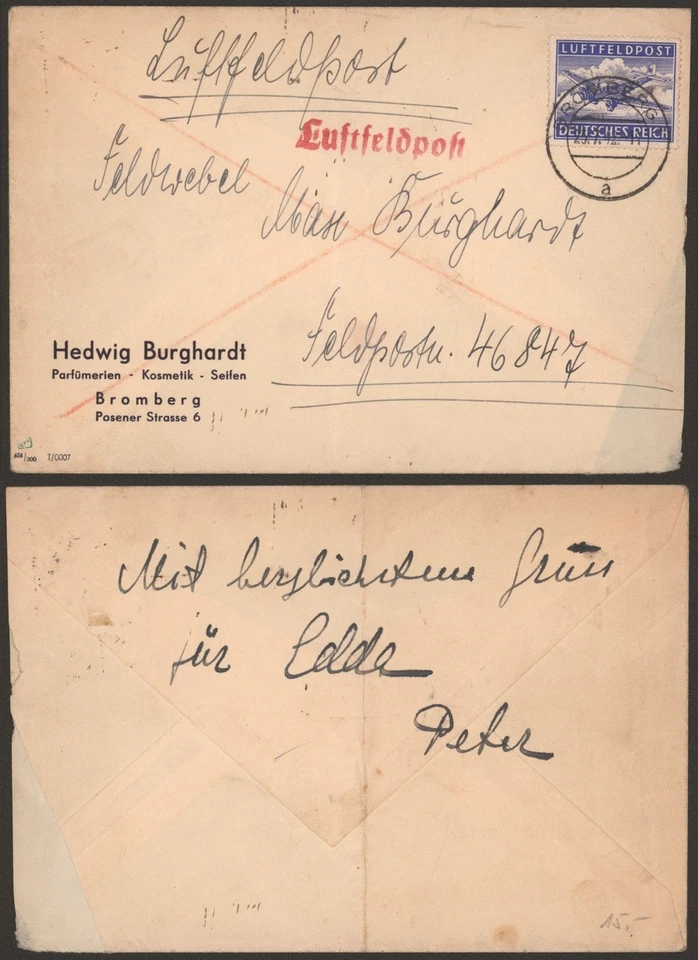 Luftfeldpost
LUFTFELDPOST
DEUTSCHES REICH
BROMBERG
a
Luftfeldpost
Feldwebel
Max Burghardt
Feldpostn. 46847
Hedwig Burghardt
Parfümerien - Kosmetik - Seifen
Bromberg
Posener Strasse 6
T/0007
Mit herzlichstem Gruss
für Edda
Peter
15.-